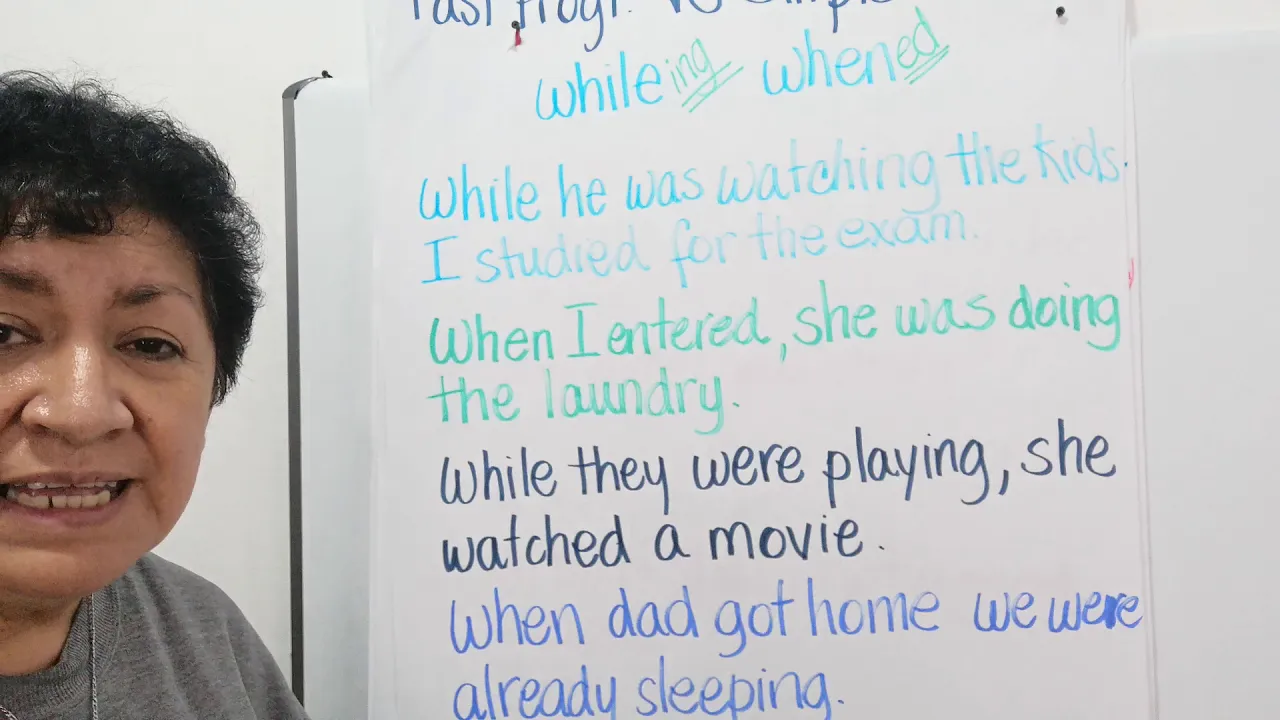 Past Progr. vs Simple
while ing when ed
While he was watching the kids.
I studied for the exam.
When I entered, she was doing
the laundry.
While they were playing, she
watched a movie.
When dad got home we were
already sleeping.